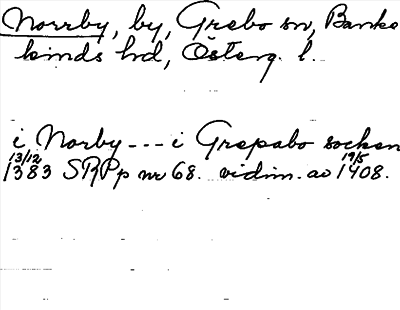 Norrby, by, Grebo sn, Banke
kinds hd, Österg. l.
i Norby --- i Grepabo socken
13/12 19/5
1383 SRPp nr 68. vidim. av 1408.